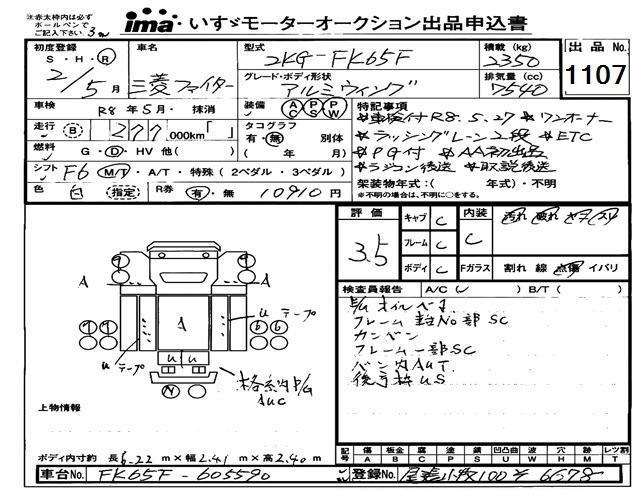 注:赤太枠内は必ず
ボールペンで
ご記入下さい
ima いすゞモーターオークション出品申込書
初度登録 S・H・R 2/5月
車名 三菱ファイター
型式 2KG-FK65F
積載(kg) 2350
出品No. 1107
グレード・ボディ形状 アルミウィング
排気量(cc) 7540
車検 R8年5月・抹消
装備 AC PS PW
特記事項
*車検付R8.5.27 *ワンオーナー
走行 B 277,000km「 」
タコグラフ 有・無 別体 ( 年 月)
*ラッシングレール2段 *ETC
燃料 G・D・HV 他( )
*PG付 *AA初出品
シフト F6 M/T・A/T・特殊(2ペダル・3ペダル)
*ラジコン後送 *取説後送
色 白 (指定) R券 有・無 10910円
架装物年式:( 年式)・不明
*不明の場合は、不明に○をする。
評価 3.5
キャブ C
フレーム C
ボディ C
内装 C
汚れ 破れ
Fガラス 割れ 線 点傷 イバリ
検査員報告 A/C( ) B/T( )
フレーム No部 SC
フレーム一部SC
US
A
A
A
u テープ
u テープ
u u
AUC
上物情報
ボディ内寸約 長6.22m×幅2.41m×高2.40m
記号 傷A 板金B 腐C 塗P 錆S 凹凸曲U 波W 穴H 跡M レツ割T
車台No. FK65F-605590
登録No. 尾張小牧100 6678